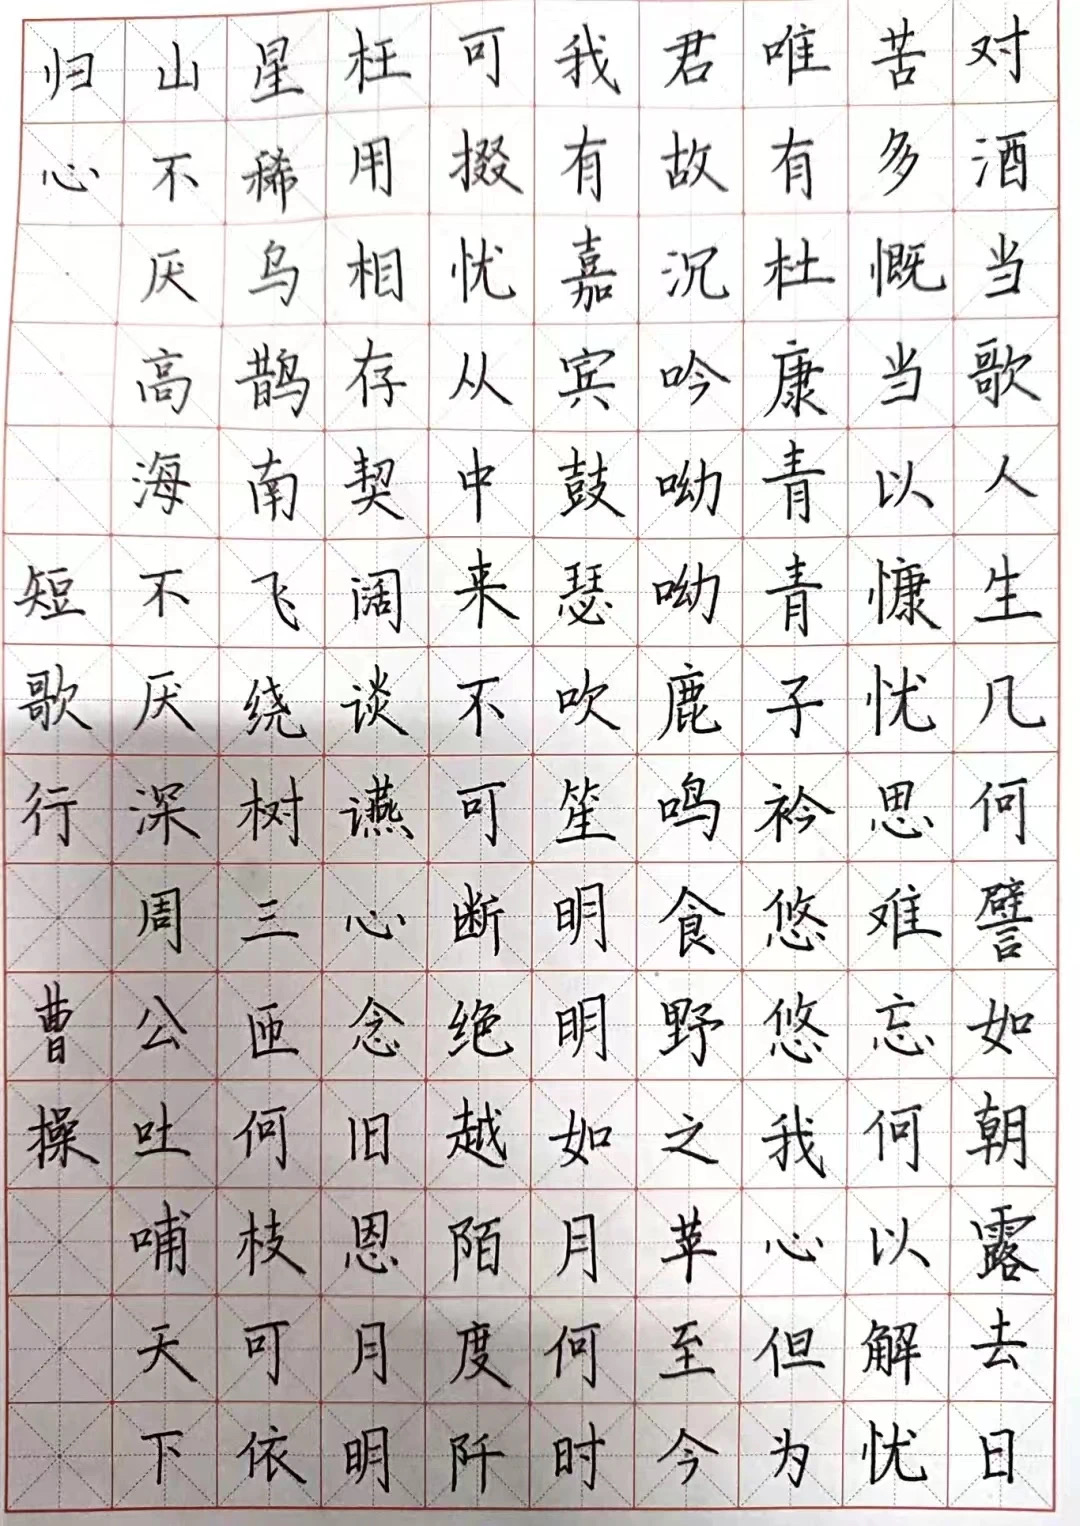 对酒当歌人生几何譬如朝露去日
苦多慨当以慷忧思难忘何以解忧
唯有杜康青青子衿悠悠我心但为
君故沉吟呦呦鹿鸣食野之苹至今
我有嘉宾鼓瑟吹笙明明如月何时
可掇忧从中来不可断绝越陌度阡
枉用相存契阔谈䜩心念旧恩月明
星稀乌鹊南飞绕树三匝何枝可依
山不厌高海不厌深周公吐哺天下
归心 短歌行 曹操